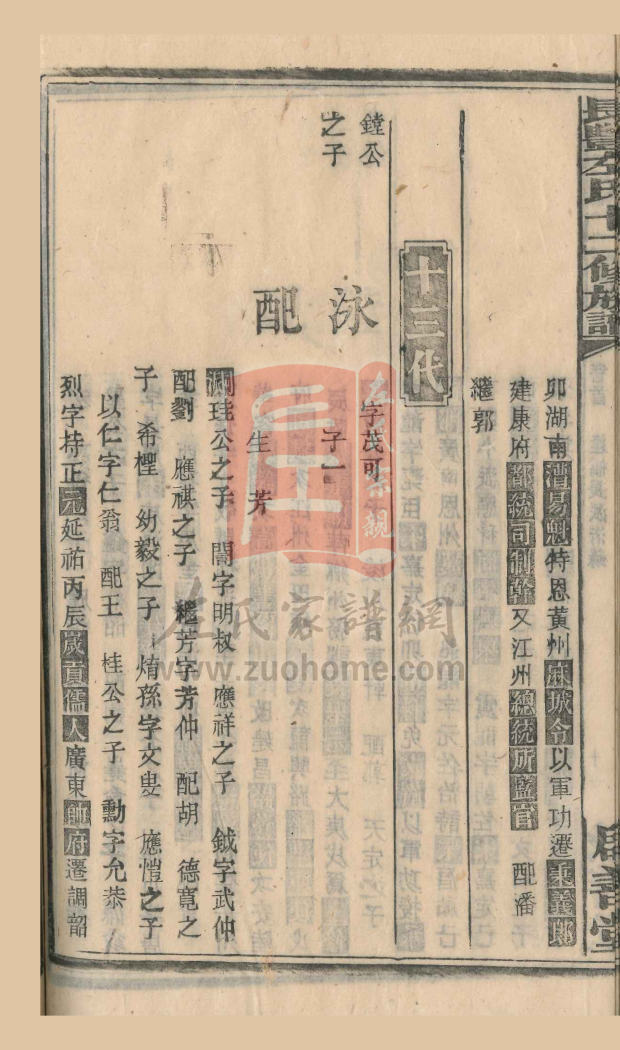 長豐左氏十二修族譜
卯湖南漕易魁特恩黃州麻城令以軍功遷秉義郎
建康府都統司制幹又江州總統所監官 配潘
繼郭
十三代
鏜公
之子
泳
字茂可
子一
配
生芳
珪公之子 誾字明叔 應祥之子 鉞字武仲
配劉 應祺之子 繼芳字芳仲 配胡 德寬之
子 希檉 幼毅之子 焴孫字文叟 應愷之子
以仁字仁翁 配王 桂公之子 勳字允恭
烈字持正元延祐丙辰歲貢儒人廣東帥府遷調韶
左氏家譜網
www.zuohome.com